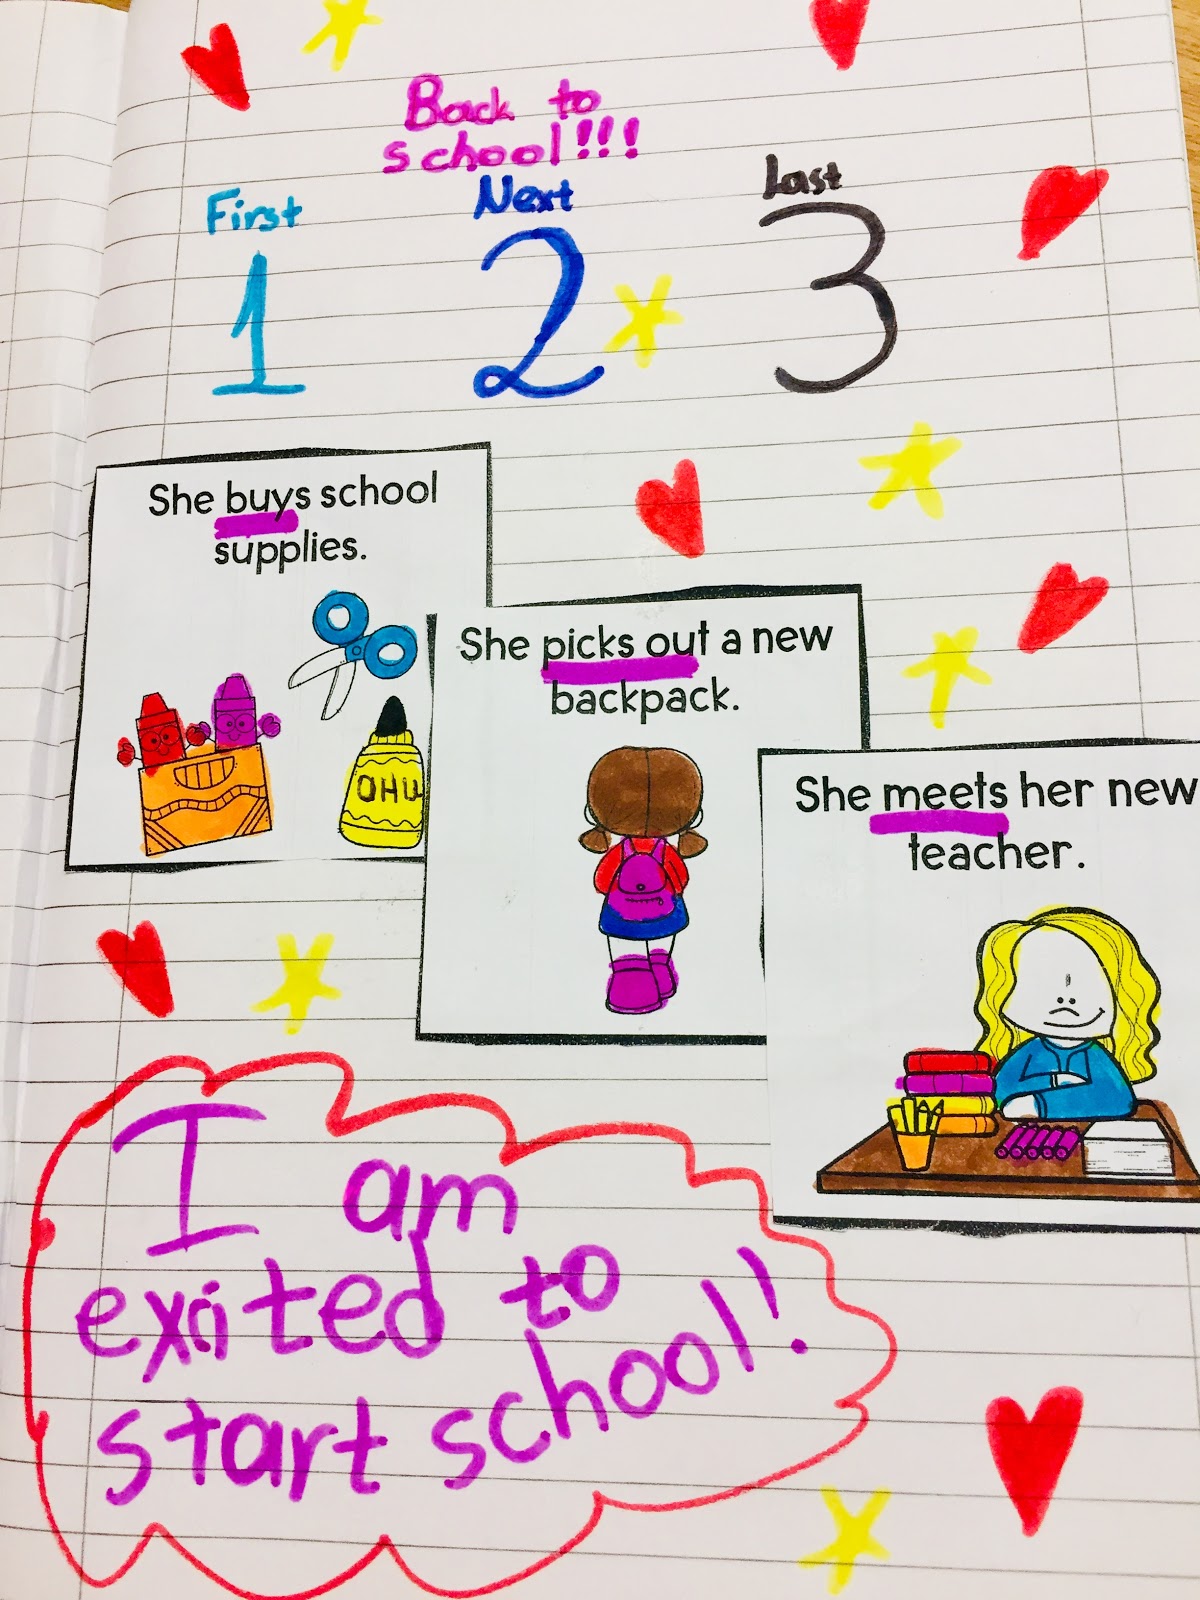 Back to
school!!!
First
Next
Last
1
2
3
She buys school
supplies.
OHU
She picks out a new
backpack.
She meets her new
teacher.
I am
exited to
start school!